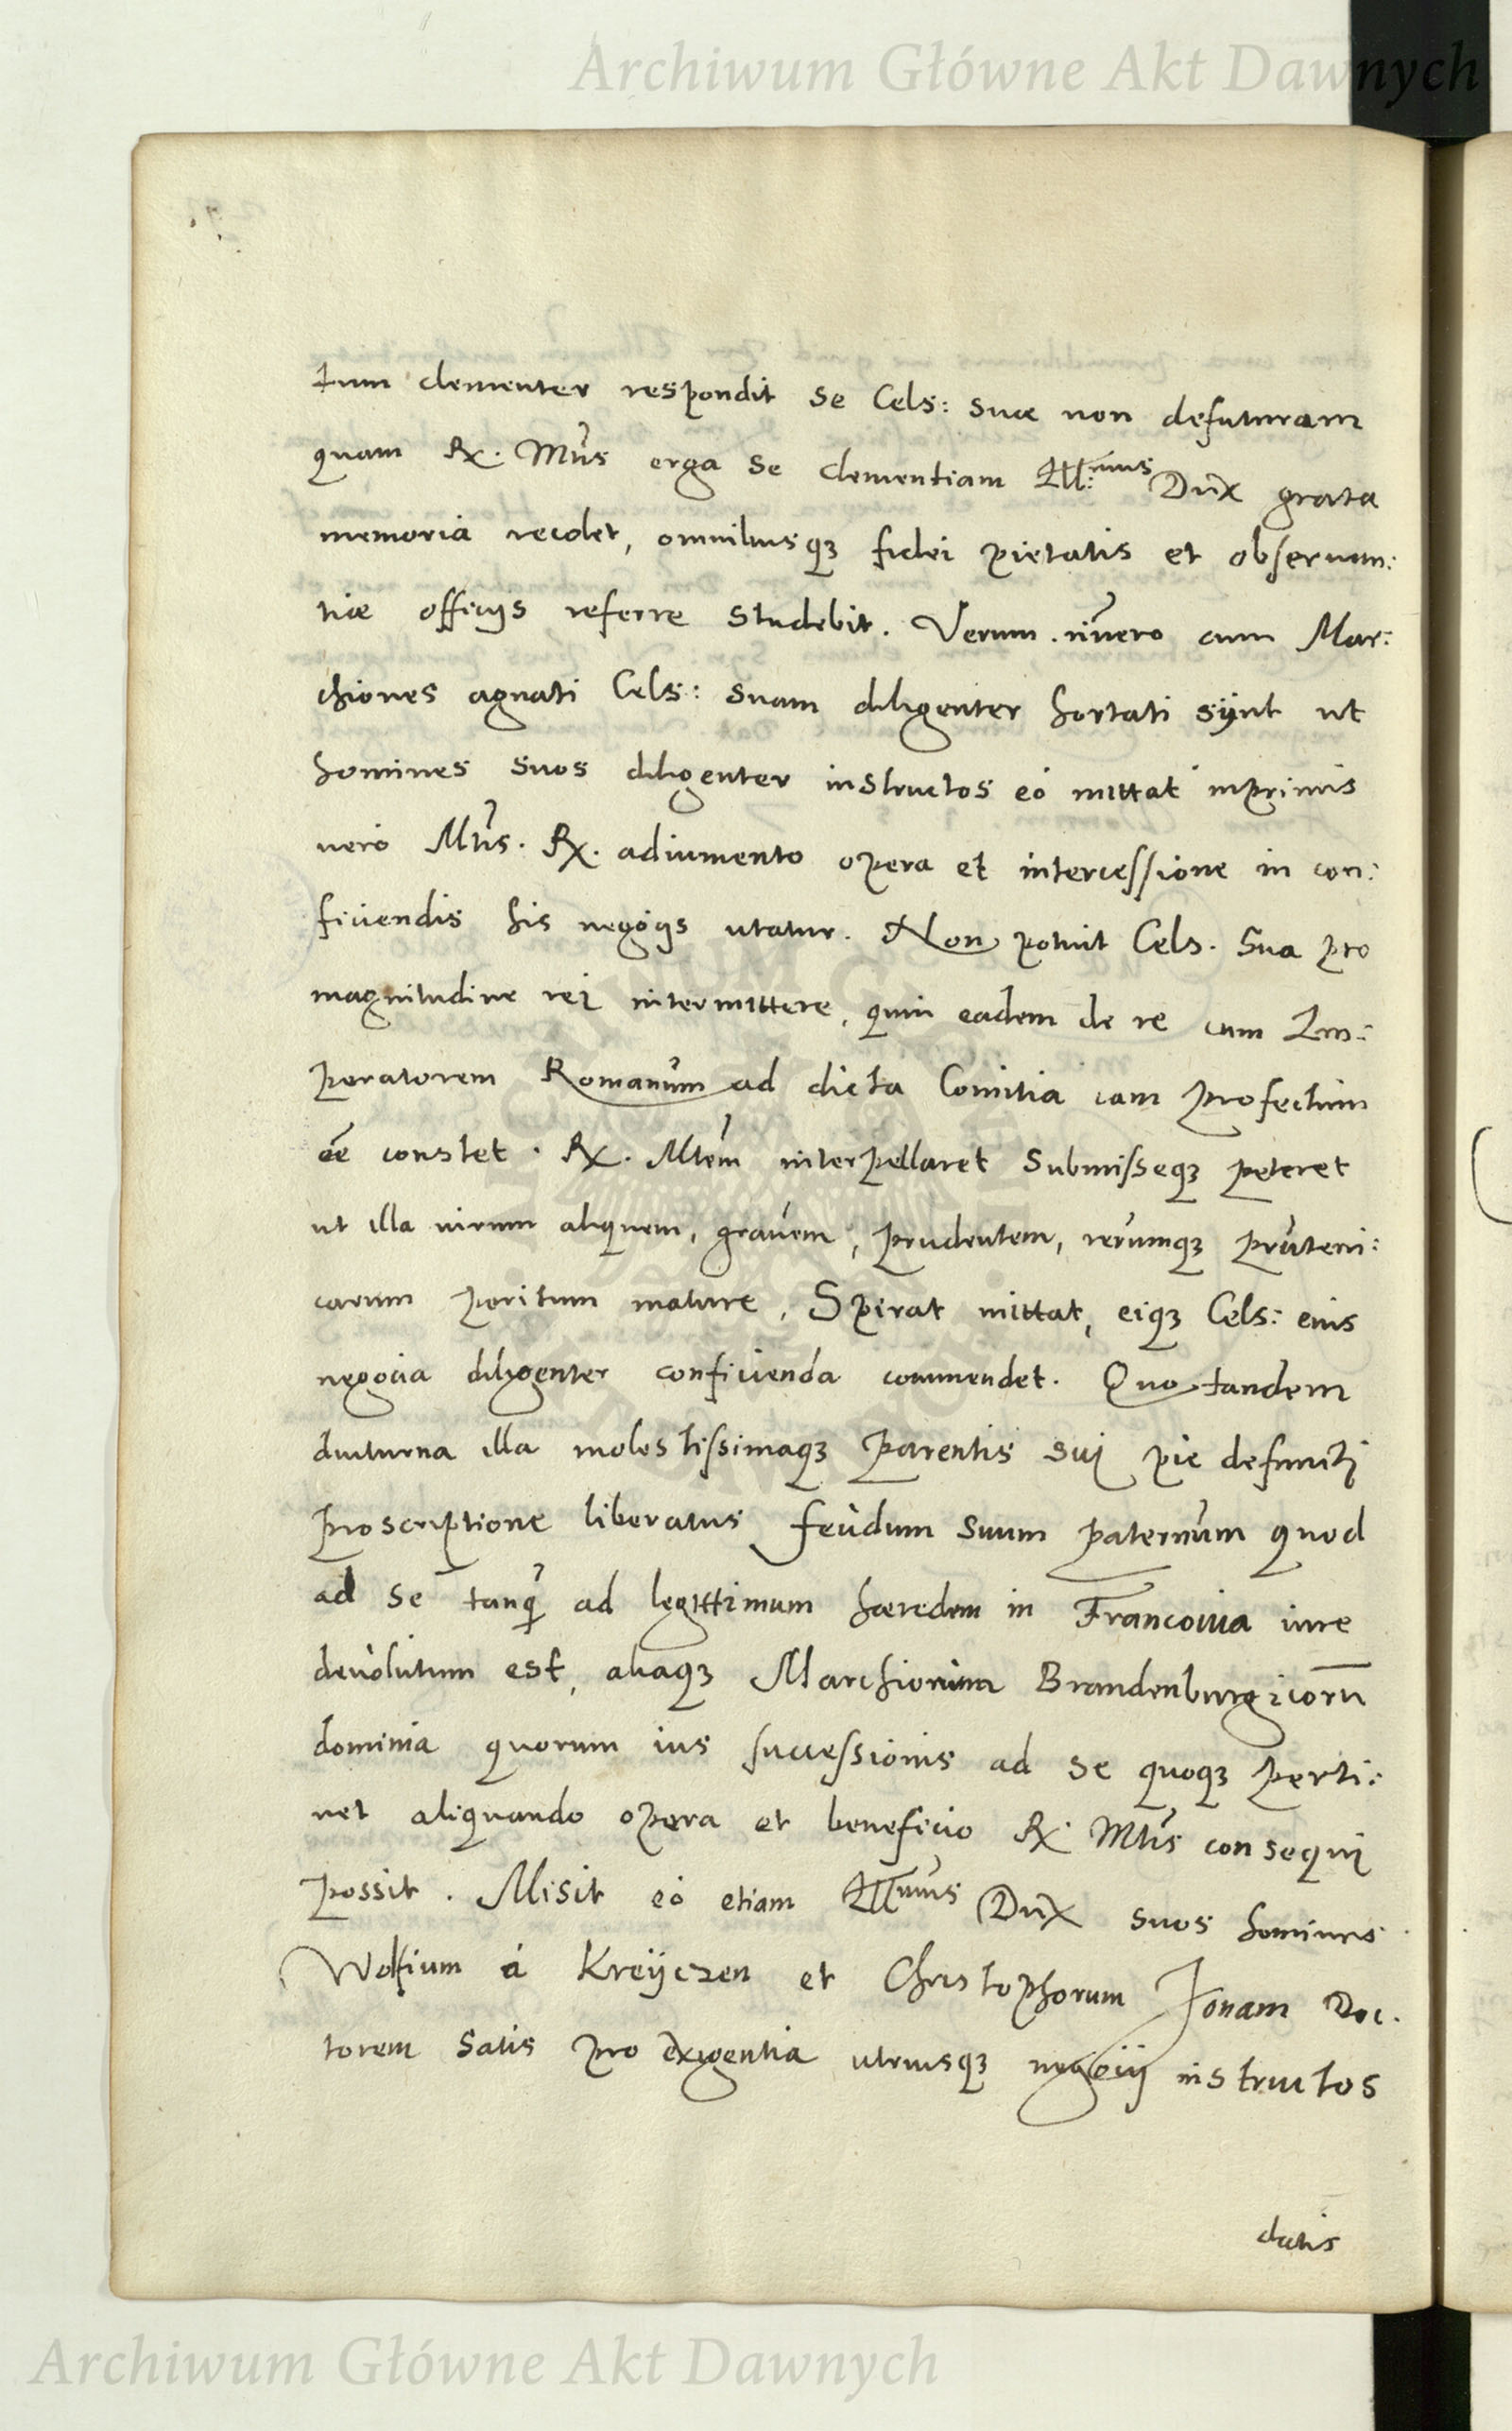 Archiwum Główne Akt Dawnych
tum clementer respondit se Cels: suae non defuturam
quam Rx. Mtis erga se clementiam Ill:mus Dux grata
memoria recolet, omnibusq3 fidei pietatis et obseruan:
tiae officijs referre studebit. Verum .n.vero cum Mar:
chiones agnati Cels: suam diligenter hortati sÿnt ut
homines suos diligenter instructos eò mittat inprimis
vero Mtis. Rx. adiumento opera et intercessione in con:
ficiendis his negōijs utatur. Non potuit Cels. Sua pro
magnitudine rei intermittere, quin eadem de re cum Im:
peratorem Romanum ad dicta Comitia iam profectum
eē constet. Rx. Mtem interpellaret submisseq3 peteret
ut illa virum aliquem, grauem, prudentem, rerumq3 pruteni:
carum peritum mature, Sperat mittat, eiq3 Cels: eius
negocia diligenter conficienda commendet. Quo tandem
diuturna illa molestissimaq3 parentis sui pie defuncti
proscriptione liberatus feudum suum paternum quod
ad se tanq̃ ad legittimum haeredem in Franconia iure
deuolutum est, aliaq3 Marchionum Brandenburgicorū
dominia quorum ius successionis ad se quoq3 perti:
net aliquando opera et beneficio Rx. Mtis consequi
possit. Misit eò etiam Illmus Dux suos homines
Wolfium à Kreÿczen et Christophorum Jonam Doc.
torem satis pro exigentia utriusq3 negōij instructos
datis
Archiwum Główne Akt Dawnych